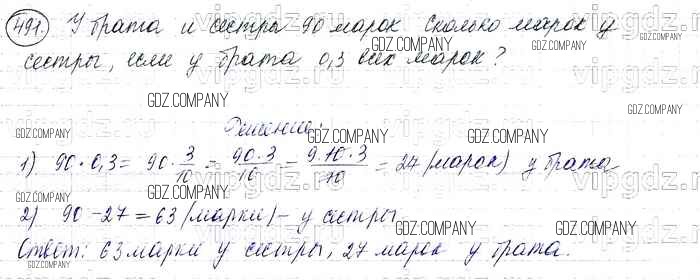 491. У брата и сестры 90 марок Сколько марок у
GDZ.COMPANY GDZ.COMPANY
сестры, если у брата 0,3 всех марок?
vipgdz.ru vipgdz.ru
GDZ.COMPANY GDZ.COMPANY
Решение:
1) 90 · 0,3 = 90 · 3/10 = 90·3/10 = 9·10·3/10 = 27 (марок) у брата
GDZ.COMPANY GDZ.COMPANY GDZ.COMPANY
2) 90 - 27 = 63 (марки) - у сестры
GDZ.COMPANY
Ответ: 63 марки у сестры, 27 марок у брата.
GDZ.COMPANY GDZ.COMPANY